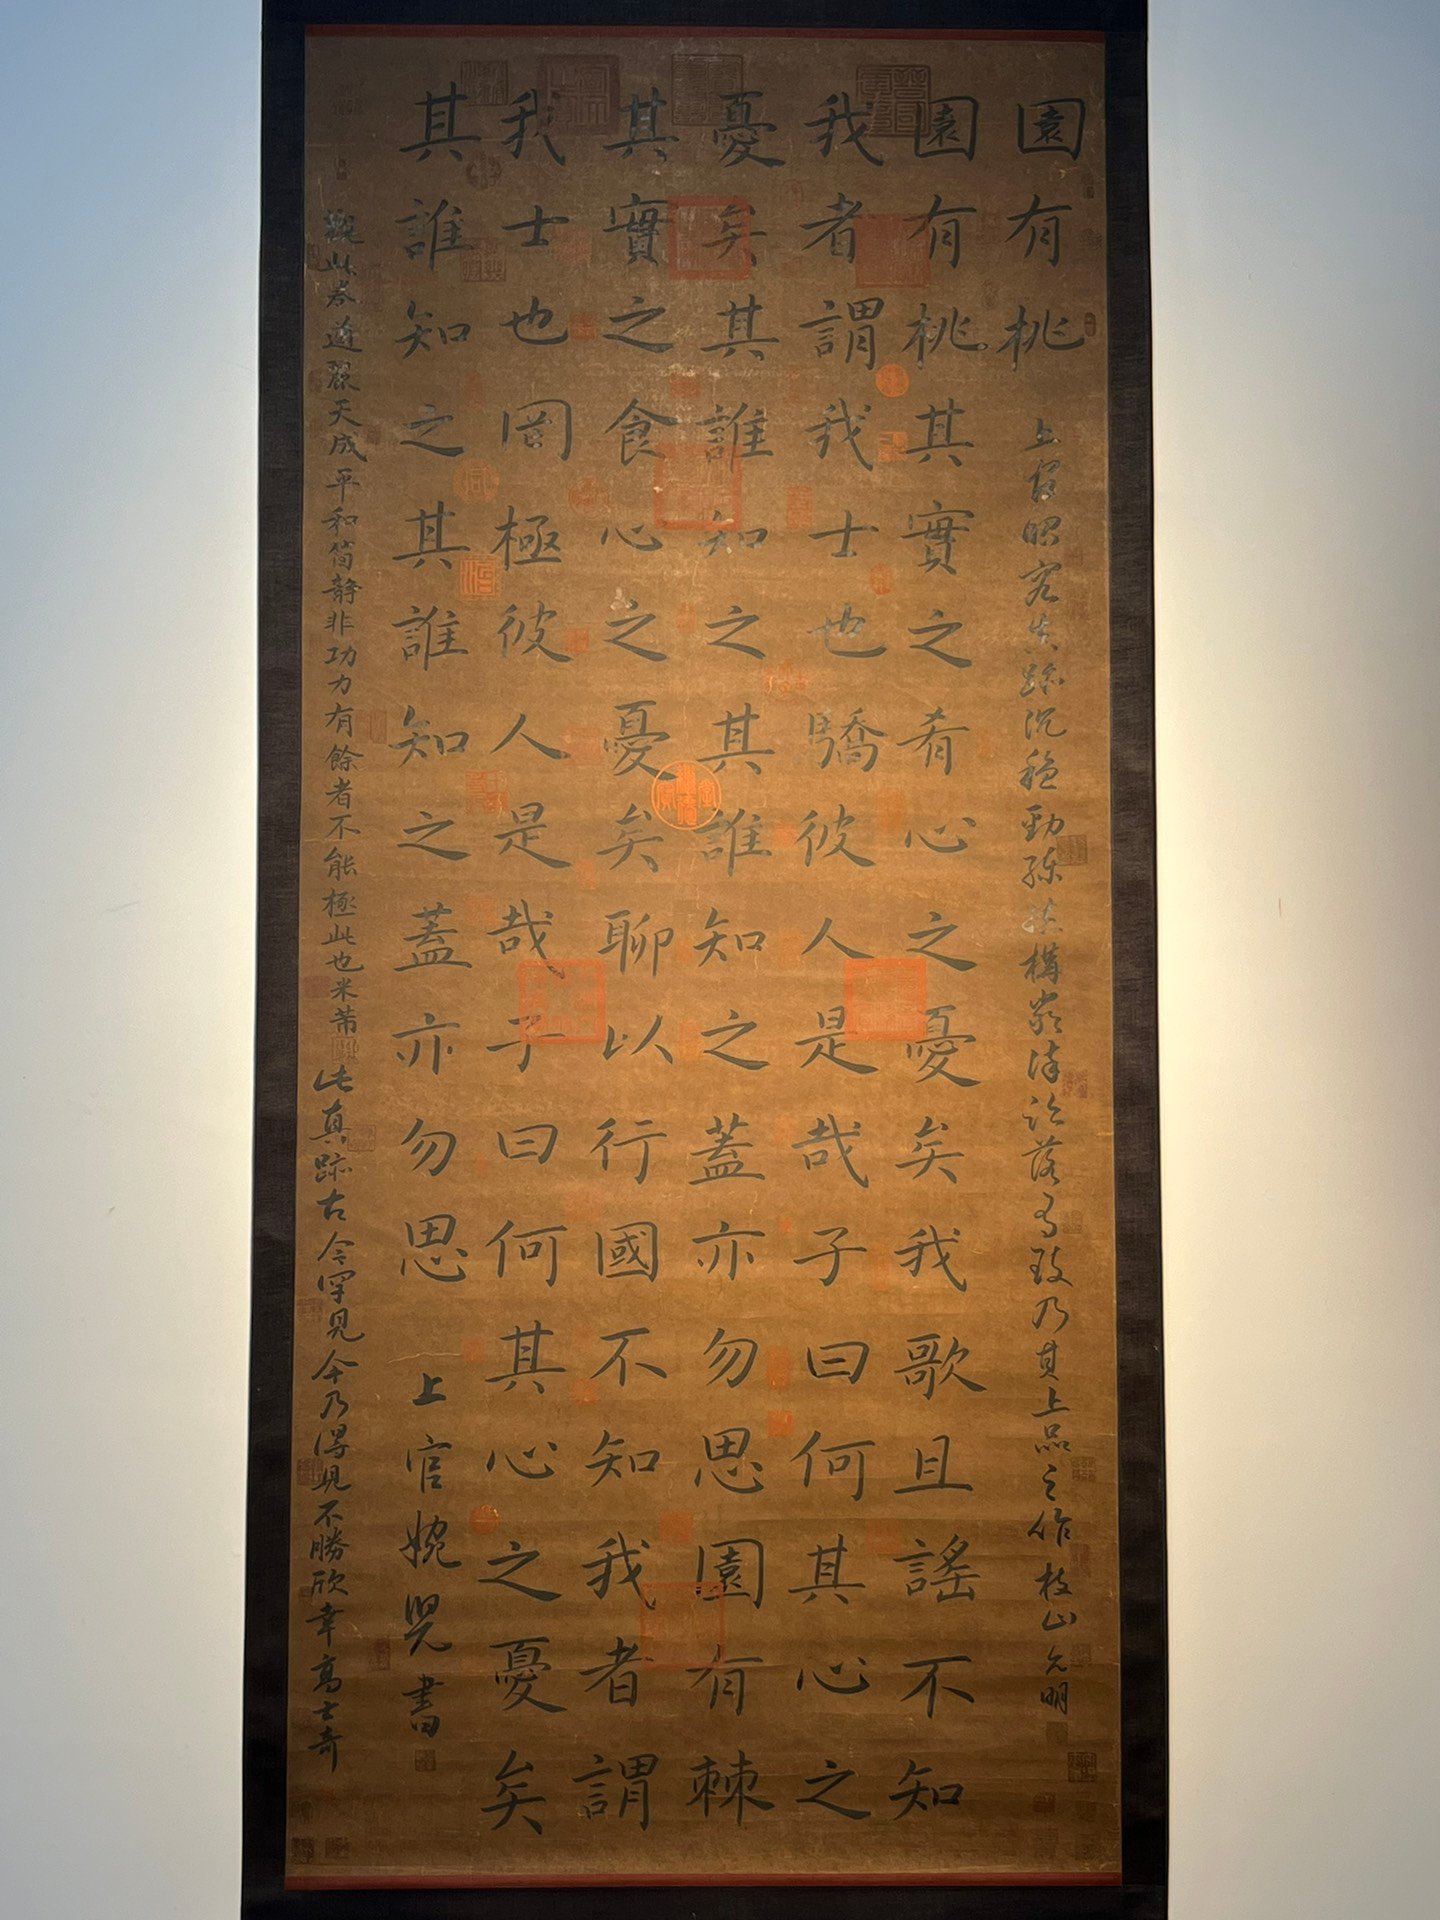 園有桃
上官昭容真跡沉穩勁練結構嚴謹
落
乃其上品之作枝山允明
園有桃其實之肴心之憂矣我歌且謠不知
我者謂我士也驕彼人是哉子曰何其心之
憂矣其誰知之其誰知之蓋亦勿思園有棘
其實之食心之憂矣聊以行國不知我者謂
我士也罔極彼人是哉子曰何其心之憂矣
其誰知之其誰知之蓋亦勿思
上官婉兒書
觀此卷遒麗天成平和簡靜非功力有餘者不能極此也米芾
此真跡古今罕見今乃得見不勝欣幸高士奇